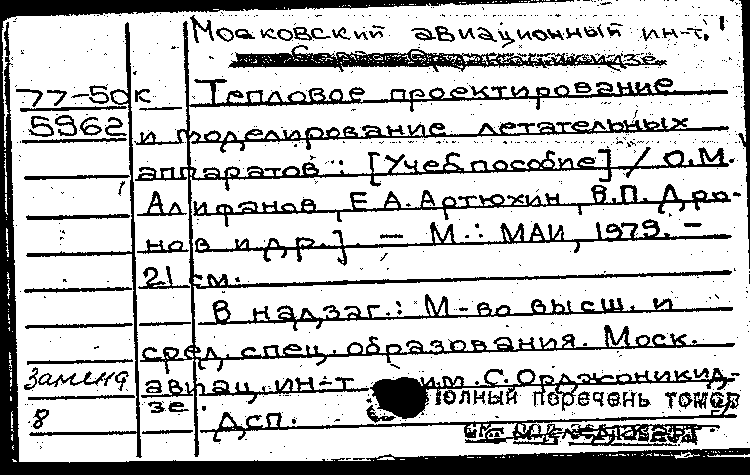 Московский авиационный ин-т.
77-50к
5962
Тепловое проектирование
и моделирование летательных
аппаратов : [Учеб. пособие] / О.М.
Алифанов, Е.А. Артюхин, В.П. Дро-
нов и др.]. — М. : МАИ, 1979. —
21 см.
В надзаг.: М-во высш. и
сред. спец. образования. Моск.
Замена
авиац. ин-т им. С. Орджоникид-
зе.
полный перечень томов
8
Дсп.